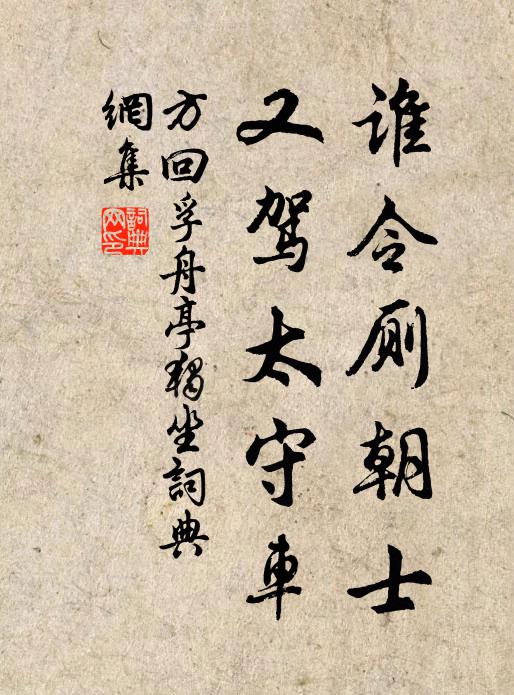 谁令厕朝士
又驾太守車
方回孚舟亭獨坐詞典
網集
詞典
网印